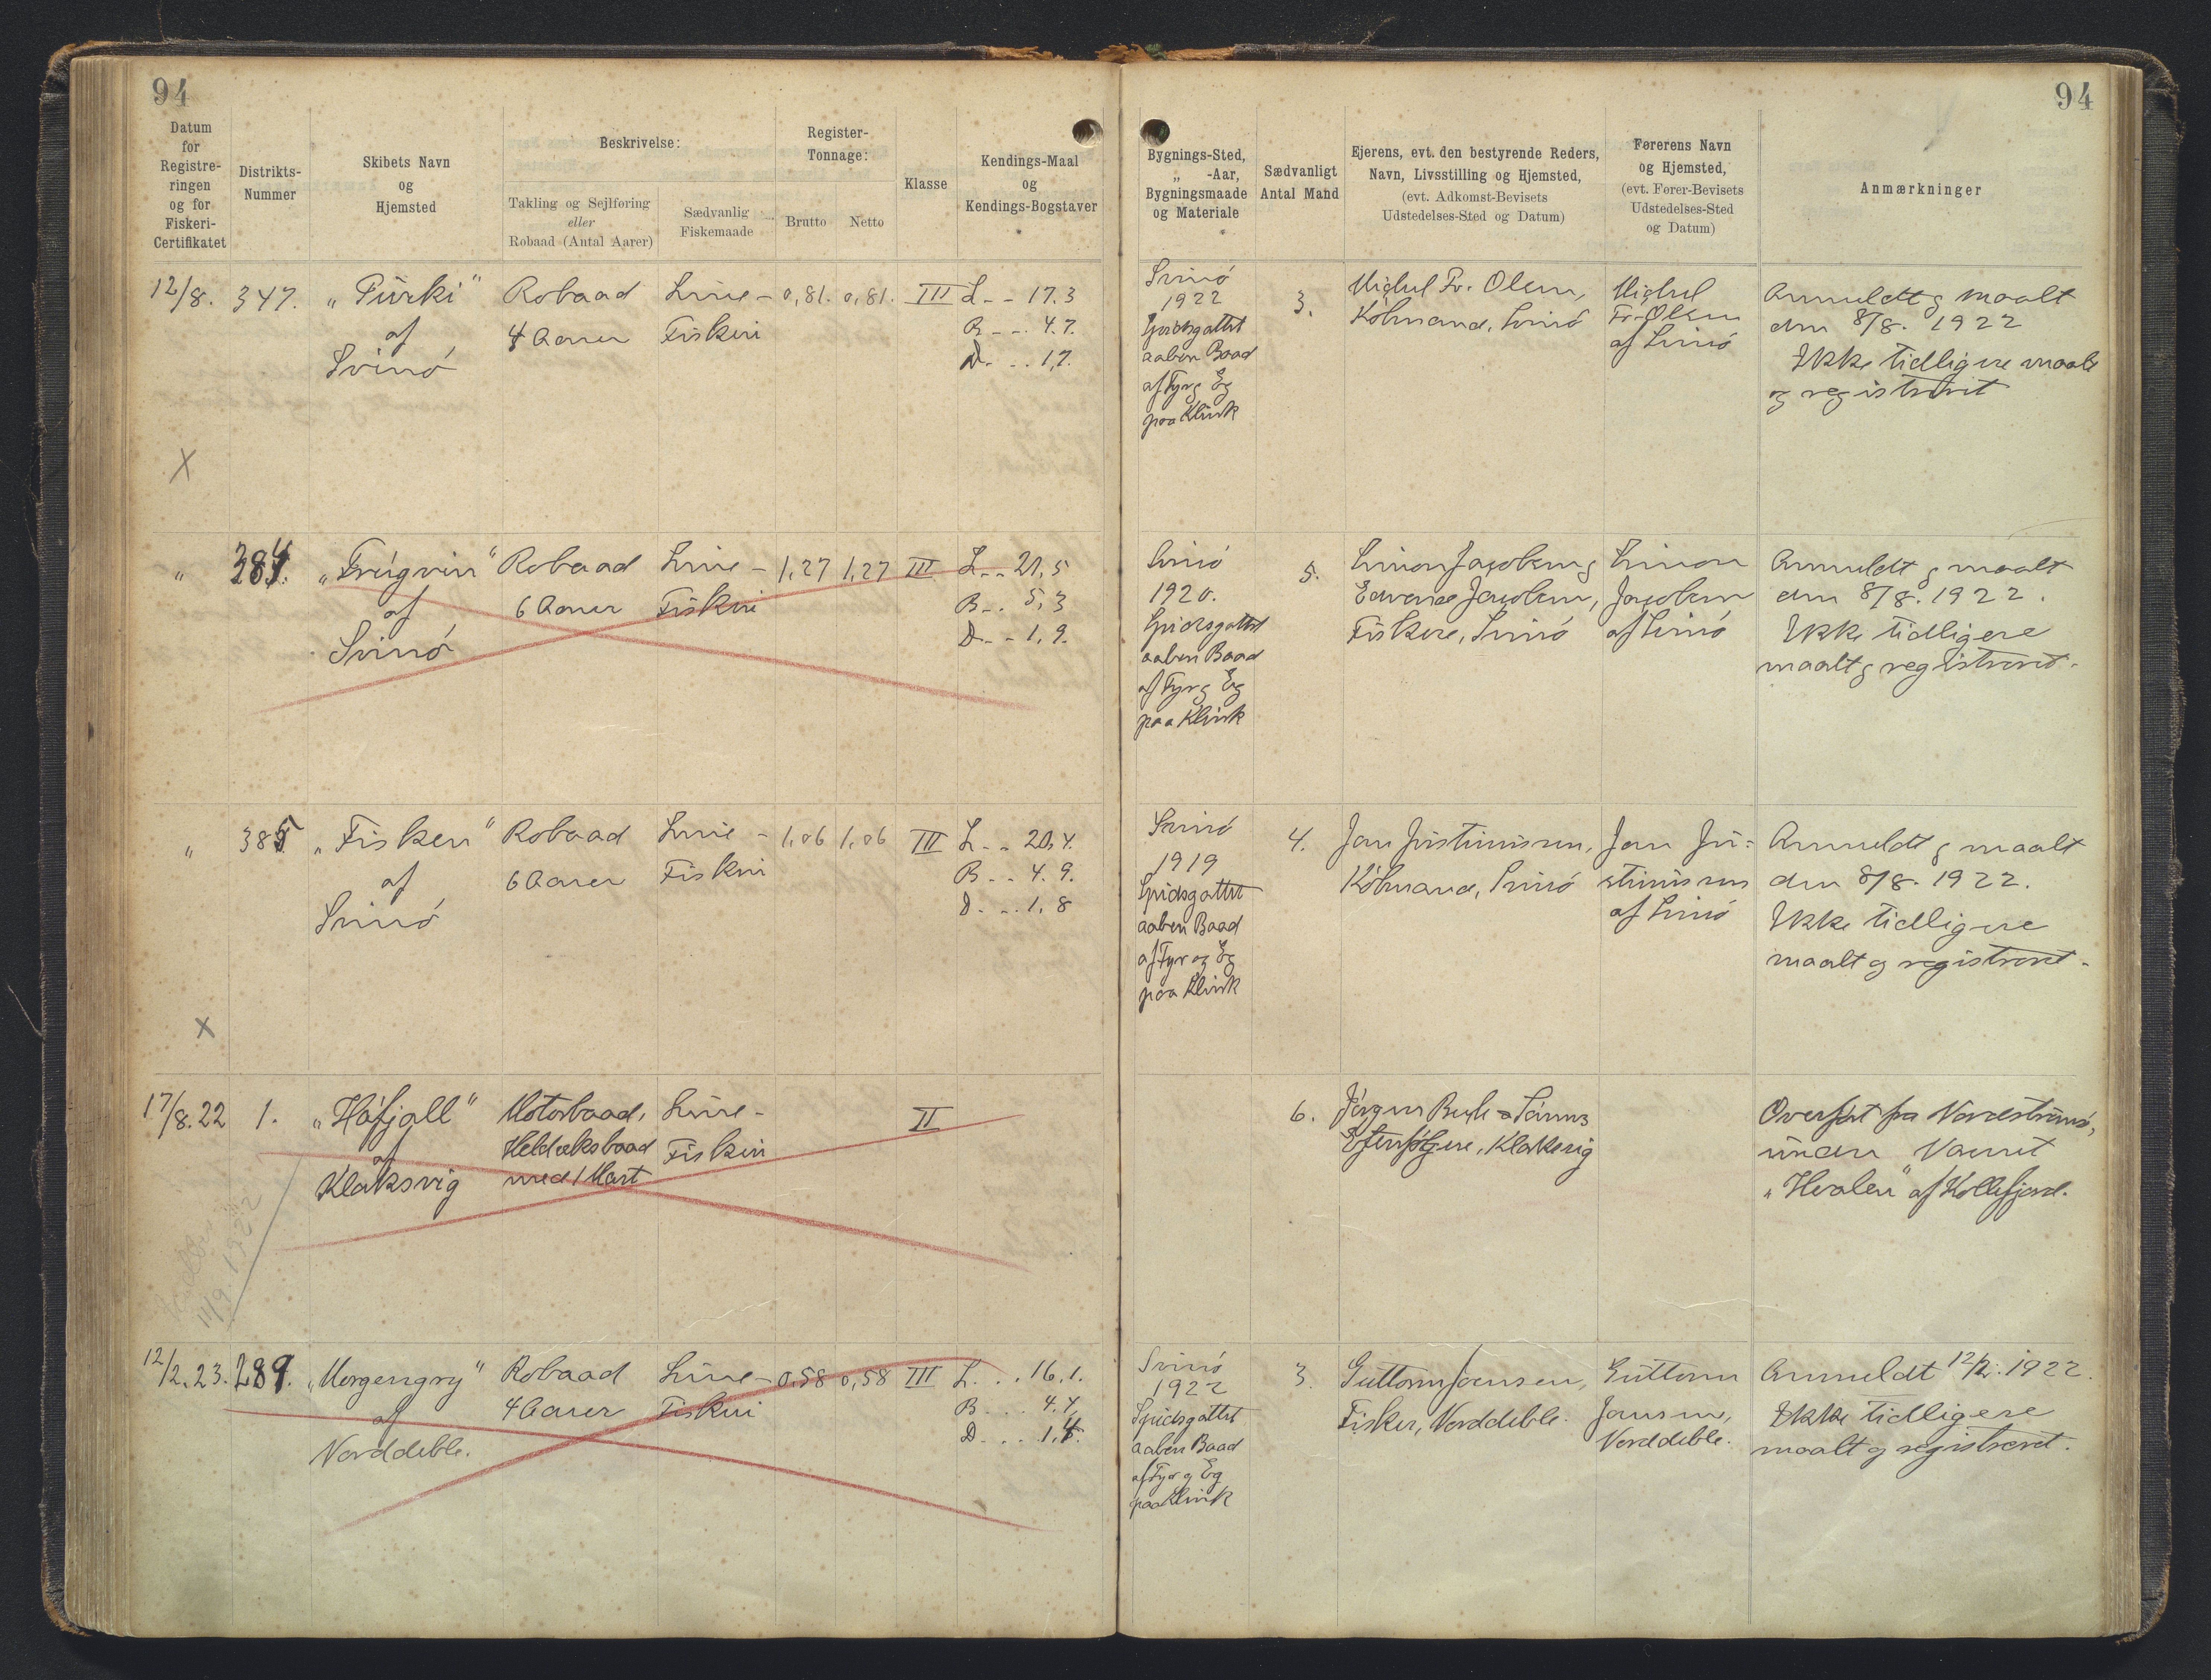 94
94
Datum
for
Registre-
ringen
og for
Fiskeri-
Certifikatet
Distrikts-
Nummer
Skibets Navn
og
Hjemsted
Beskrivelse:
Takling og Sejlføring
eller
Robaad (Antal Aarer)
Sædvanlig
Fiskemaade
Register-
Tonnage:
Brutto
Netto
Klasse
Kendings-Maal
og
Kendings-Bogstaver
Bygnings-Sted,
„ -Aar,
Bygningsmaade
og Materiale
Sædvanligt
Antal Mand
Ejerens, evt. den bestyrende Reders,
Navn, Livsstilling og Hjemsted,
(evt. Adkomst-Bevisets
Udstedelses-Sted og Datum)
Førerens Navn
og Hjemsted,
(evt. Fører-Bevisets
Udstedelses-Sted
og Datum)
Anmærkninger
12/8.
347.
„Purki"
af
Svinó
Robaad
4 Aarer
Line-
Fiskeri
0,81.
0,81.
III
L-- 17.3
B--. 4.7.
D-... 1,7.
Svinó
1922
Spidsgattet
aaben Baad
af Fyr og Eg
paa Klink
3.
Michel Fr. Olsen,
Købmand, Svinó
Michel
Fr. Olsen
af Svinó
Anmeldt og maalt
den 8/8. 1922
Ikke tidligere maalt
og registreret
X
„
384.
„Frúgvin"
af
Svinó
Robaad
6 Aarer
Line-
Fiskeri
1,27
1,27
III
L-- 21,5
B-.. 5,3
D--- 1,9.
Svinó
1920.
Spidsgattet
aaben Baad
af Fyr og Eg
paa Klink
5.
Simon Jacobsen og
Jacobsen,
Fiskere, Svinó
Simon
Jacobsen
af Svinó
Anmeldt og maalt
den 8/8. 1922.
Ikke tidligere
maalt og registreret.
„
385
„Fisken"
af
Svinó
Robaad
6 Aarer
Line-
Fiskeri
1,06
1,06
III
L-- 20,4.
B-.. 4.9.
D-... 1,8
Svinó
1919
Spidsgattet
aaben Baad
af Fyr og Eg
paa Klink
4.
Joen Justinussen,
Købmand, Svinó
Joen Ju-
stinussen
af Svinó
Anmeldt og maalt
den 8/8. 1922.
Ikke tidligere
maalt og registreret.
X
17/8.22
1.
„Háfjall"
af
Klaksvig
Motorbaad,
Heldæksbaad
med 1 Mast
Line-
Fiskeri
II
6.
Jørgen
Efterfølgere, Klaksvig
Overført fra Nordstrømø,
under Navnet
„Hvalen" af Kollefjord.
11/9 1922
12/2.23.
289.
„Morgengry"
af
Norddeble.
Robaad
4 Aarer
Line-
Fiskeri
0,58
0,58
III
L... 16,1.
B.... 4.4.
D.... 1,4.
Svinó
1922
Spidsgattet
aaben Baad
af Fyr og Eg
paa Klink
3.
Guttorm Joensen,
Fisker, Norddeble.
Guttorm
Joensen,
Norddeble.
Anmeldt 12/2. 1922.
Ikke tidligere
maalt og registreret.